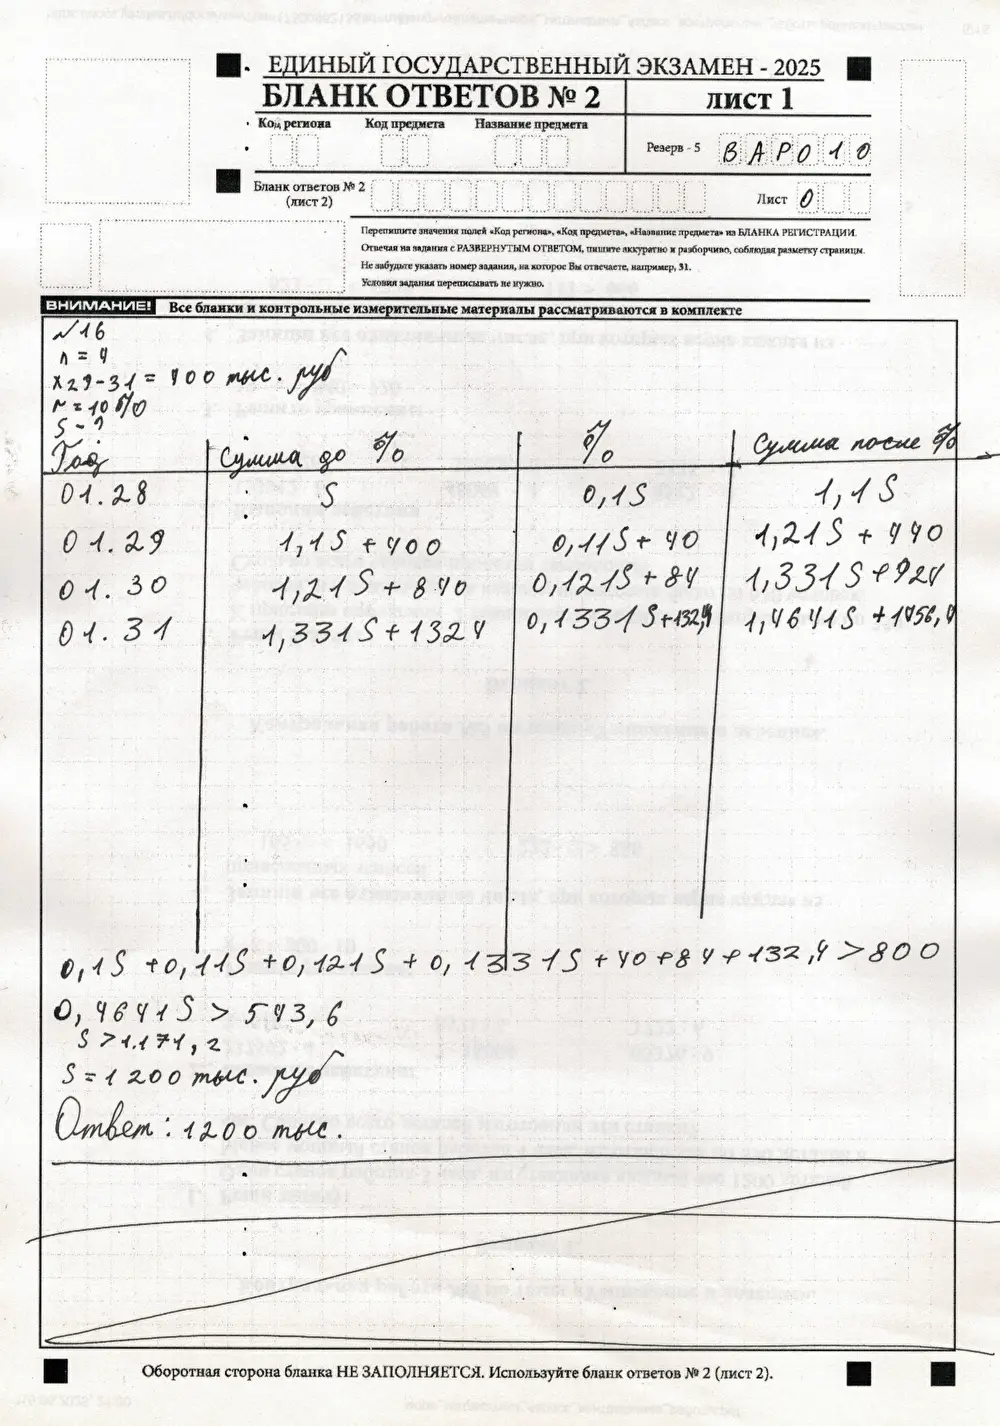 ЕДИНЫЙ ГОСУДАРСТВЕННЫЙ ЭКЗАМЕН - 2025
БЛАНК ОТВЕТОВ № 2 лист 1
Код региона Код предмета Название предмета
Резерв - 5 ВАР010
Бланк ответов № 2 (лист 2) Лист 0
Перепишите значения полей «Код региона», «Код предмета», «Название предмета» из БЛАНКА РЕГИСТРАЦИИ.
Отвечая на задания с РАЗВЕРНУТЫМ ОТВЕТОМ, пишите аккуратно и разборчиво, соблюдая разметку страницы.
Не забудьте указать номер задания, на которое Вы отвечаете, например, 31.
Условия задания переписывать не нужно.
ВНИМАНИЕ! Все бланки и контрольные измерительные материалы рассматриваются в комплекте
№16
n = 4
x29-31 = 400 тыс. руб
r = 10%
S - ?
Год Сумма до % % Сумма после %
01.28 S 0,1S 1,1S
01.29 1,1S + 400 0,11S + 40 1,21S + 440
01.30 1,21S + 840 0,121S + 84 1,331S + 924
01.31 1,331S + 1324 0,1331S + 132,4 1,4641S + 1456,4
0,1S + 0,11S + 0,121S + 0,1331S + 40 + 84 + 132,4 > 800
0,4641S > 543,6
S > 1.171,2
S = 1200 тыс. руб
Ответ: 1200 тыс.
Оборотная сторона бланка НЕ ЗАПОЛНЯЕТСЯ. Используйте бланк ответов № 2 (лист 2).